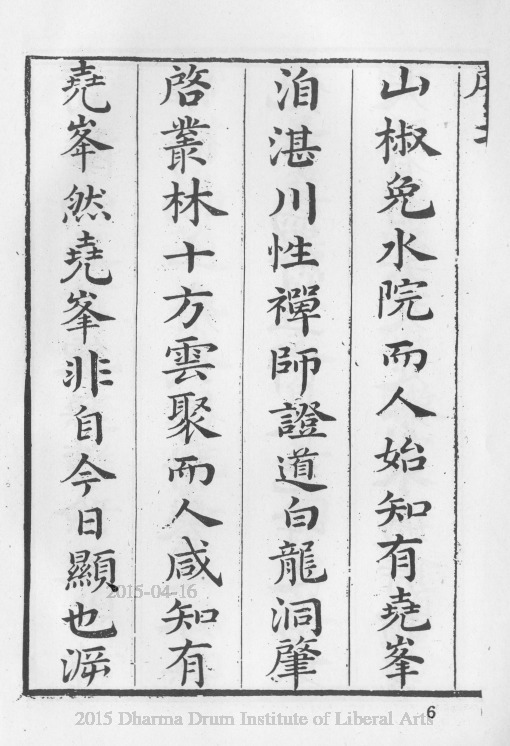 山椒免水院而人始知有堯峯
洎湛川性禪師證道白龍洞肇
啓叢林十方雲聚而人咸知有
堯峯然堯峯非自今日顯也涯
2015-04-16
2015 Dharma Drum Institute of Liberal Arts
6